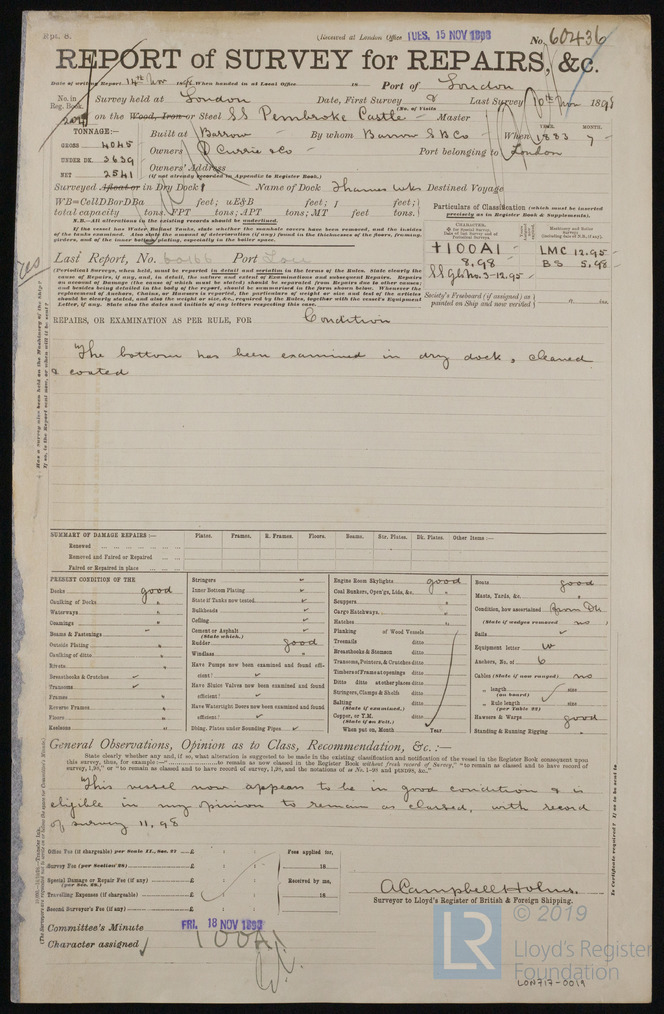 Rpt. 8.
(Received at London Office TUES. 15 NOV 1898
No. 60436
REPORT of SURVEY for REPAIRS, &c.
Date of writing Report 14th Nov 1898 When handed in at Local Office 18 Port of London
No. in Reg. Book. Survey held at London Date, First Survey 8 Last Survey 10th Nov 1898
(No. of Visits
on the Wood, Iron or Steel SS Pembroke Castle Master
TONNAGE:—
GROSS 4045
UNDER DK. 3639
NET 2541
Built at Barrow By whom Barrow S B Co When 1883 7
YEAR. MONTH.
Owners D Currie & Co Port belonging to London
Owners' Address
(If not already recorded in Appendix to Register Book.)
Surveyed Afloat or in Dry Dock Name of Dock Thames Wks Destined Voyage
WB=CellDBorDBa feet; uE&B feet; f feet;
total capacity tons. FPT tons; APT tons; MT feet tons.
N.B.—All alterations in the existing records should be underlined.
If the vessel has Water Ballast Tanks, state whether the manhole covers have been removed, and the insides
of the tanks examined. Also state the amount of deterioration (if any) found in the thicknesses of the floors, framing,
girders, and of the inner bottom plating, especially in the boiler space.
Particulars of Classification (which must be inserted
precisely as in Register Book & Supplements).
CHARACTER.
Machinery and Boiler Surveys
+100A1
8,98
SS gl. No. 3-12.95
LMC 12.95
BS 5,98
Society's Freeboard (if assigned) as
painted on Ship and now verified
ft. ins.
Last Report, No. 60166 Port Lon
(Periodical Surveys, when held, must be reported in detail and seriatim in the terms of the Rules. State clearly the
cause of Repairs, if any, and, in detail, the nature and extent of Examinations and subsequent Repairs. Repairs
on account of Damage (the cause of which must be stated) should be separated from Repairs due to other causes;
and besides being detailed in the body of the report, should be summarised in the form shown below. Whenever the
replacement of Anchors, Chains, or Hawsers is reported, the particulars of weight or size and test of the articles
should be clearly stated, and also the weight or size, &c., required by the Rules, together with the vessel's Equipment
Letter, if any. State also the dates and initials of any letters respecting this case.
REPAIRS, OR EXAMINATION AS PER RULE, FOR Condition
The bottom has been examined in dry dock, cleaned
& coated
SUMMARY OF DAMAGE REPAIRS:—
Plates. Frames. R. Frames. Floors. Beams. Str. Plates. Dk. Plates. Other Items:—
Renewed
Removed and Faired or Repaired
Faired or Repaired in place
PRESENT CONDITION OF THE
Decks good
Caulking of Decks "
Waterways "
Coamings "
Beams & Fastenings
Outside Plating "
Caulking of ditto "
Rivets "
Breasthooks & Crutches
Transoms
Frames "
Reverse Frames "
Floors "
Keelsons "
Stringers
Inner Bottom Plating
State if Tanks now tested
Bulkheads
Ceiling
Cement or Asphalt
(State which.)
Rudder good
Windlass "
Have Pumps now been examined and found efficient?
Have Sluice Valves now been examined and found
efficient?
Have Watertight Doors now been examined and found
efficient?
Dblng. Plates under Sounding Pipes
Engine Room Skylights good
Coal Bunkers, Open'gs, Lids, &c. "
Scuppers "
Cargo Hatchways "
Hatches "
Planking of Wood Vessels
Treenails ditto
Breasthooks & Stemson ditto
Transoms, Pointers, & Crutches ditto
Timbers of Frame at openings ditto
Ditto ditto at other places ditto
Stringers, Clamps & Shelfs ditto
Salting ditto
(State if examined.)
Copper, or Y.M. ditto
(State if on Felt.)
When put on, Month Year
Boats good
Masts, Yards, &c. "
Condition, how ascertained from Dk
(State if wedges removed no )
Sails
Equipment letter W
Anchors, No. of 6
Cables (State if now ranged) no
" length (on board) size
" Rule length (per Table 22) size
Hawsers & Warps good
Standing & Running Rigging "
General Observations, Opinion as to Class, Recommendation, &c.:—
State clearly whether any and, if so, what alteration is suggested to be made in the existing classification and notification of the vessel in the Register Book consequent upon
This vessel now appears to be in good condition & is
eligible in my opinion to remain as classed, with record
of survey 11,98
Office Fee (if chargeable) per Scale II., Sec. 27 £
Survey Fee (per Section 28) £
Special Damage or Repair Fee (if any) £
(per Sec. 28.)
Travelling Expenses (if chargeable) £
Second Surveyor's Fee (if any) £
Fees applied for,
18
Received by me,
18
A Campbell Holms.
Surveyor to Lloyd's Register of British & Foreign Shipping.
Committee's Minute FRI. 18 NOV 1898
Character assigned 100A1
© 2019
LR
Lloyd's Register
Foundation
LON717-0019